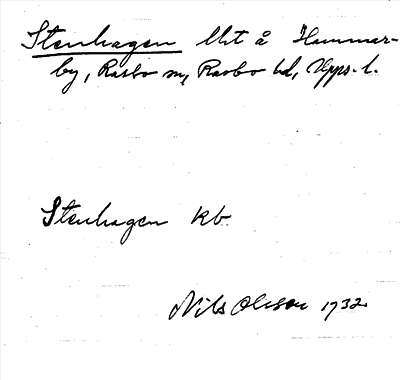 Stenhagen lht å Hammar-
by, Rasbo sn, Rasbo hd, Upps. l.
Stenhagen kb
Nils Olsson 1732